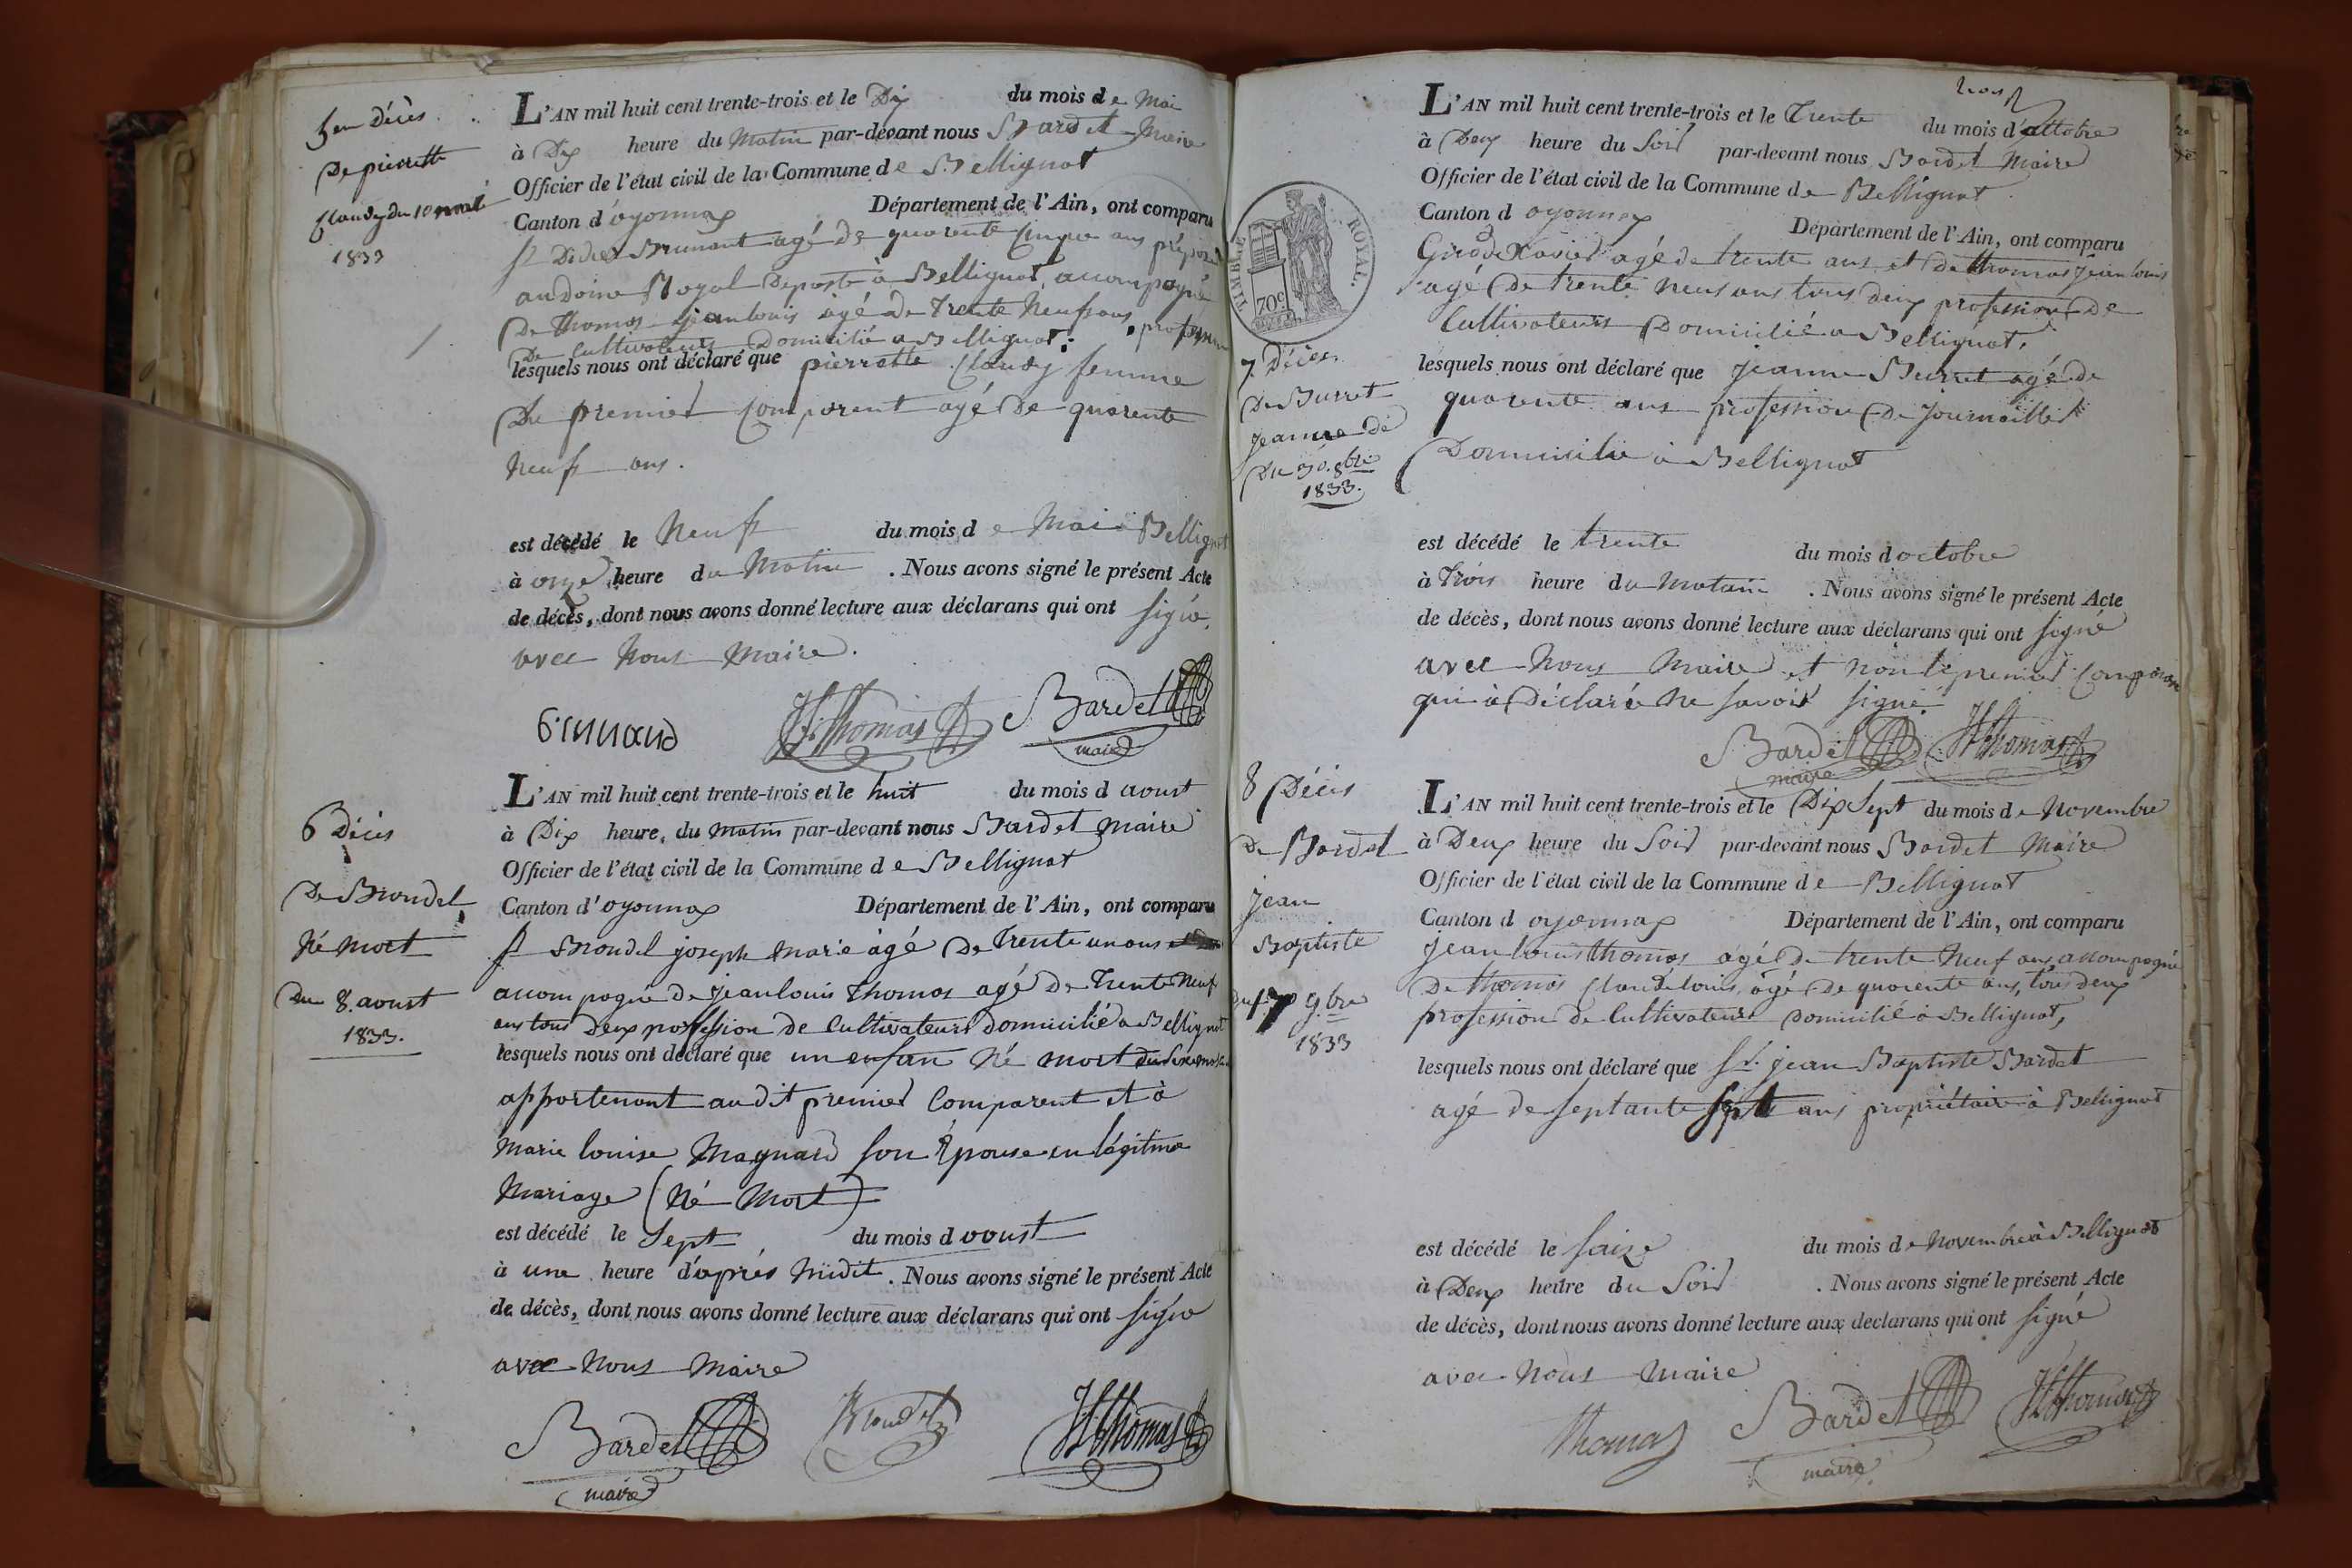 5em décès
De pierrette
Claudy du 10 mai
1833
L'AN mil huit cent trente-trois et le Dix du mois de Mai
à Dix heure du Matin par-devant nous Bardet Maire
Officier de l'état civil de la Commune de Bellignat
Canton d'oyonnax Département de l'Ain, ont comparu
agé de quarente cinque ans préposé
Royal Deposte à Bellignat, accompagné
De thomas jean louis agé de trente Neuf ans, profession
De Cultivateurs Domicilié a Bellignat.
lesquels nous ont déclaré que pierrette Claudy femme
Du premier comparent agé De quarente
Neuf ans.
est décédé le Neuf du mois de Mai à Bellignat
à onze heure du Matin. Nous avons signé le présent Acte
de décès, dont nous avons donné lecture aux déclarans qui ont signé
avec Nous Maire.
JLThomas Bardet
maire
6 Décès
De Brondel
Né mort
Du 8 aoust
1833.
L'AN mil huit cent trente-trois et le huit du mois d aoust
à Dix heure du matin par-devant nous Bardet Maire
Officier de l'état civil de la Commune de Bellignat
Canton d'oyonnax Département de l'Ain, ont comparu
st Brondel joseph Marie agé De trente un ans
accompagné de jean louis thomas agé de trente Neuf
ans tous deux proffession de Cultivateurs domicilié a Bellignat
lesquels nous ont déclaré que un enfan Né mort du sexe
appartenant au dit premier Comparent et à
Marie louise Magnard son Epouse en légitime
Mariage (Né Mort)
est décédé le Sept du mois d aoust
à une heure d'après Midit. Nous avons signé le présent Acte
de décès, dont nous avons donné lecture aux déclarans qui ont signé
avec Nous Maire
Bardet Brondel JLThomas
maire
TIMBRE ROYAL.
70c
7 Décès
De Burret
jeanne
Du 30. 8bre
1833.
L'AN mil huit cent trente-trois et le Trente du mois d'octobre
à Deux heure du Soir par-devant nous Bardet Maire
Officier de l'état civil de la Commune de Bellignat
Canton d oyonnax Département de l'Ain, ont comparu
Girod Xavier agé de trente ans et De thomas jean louis
agé De trente Neuf ans tous deux profession de
Cultivateurs Domicilié a Bellignat.
lesquels nous ont déclaré que jeanne Burret agé de
quarente ans profession De journaillier
Domicilié à Bellignat
est décédé le trente du mois d octobre
à trois heure du Matain. Nous avons signé le présent Acte
de décès, dont nous avons donné lecture aux déclarans qui ont signé
avec Nous Maire et non le premier comparan
qui à Déclaré Ne savoir signé
Bardet JLThomas
maire
8 Décès
De Bardet
jean
Baptiste
du 17 9bre
1833
L'AN mil huit cent trente-trois et le Dix Sept du mois de Novembre
à Deux heure du Soir par-devant nous Bardet Maire
Officier de l'état civil de la Commune de Bellignat
Canton d oyonnax Département de l'Ain, ont comparu
jean louis thomas agé de trente Neuf ans accompagné
De thomas Claude louis, agé de quarente ans, tous deux
profession de Cultivateurs Domicilié à Bellignat,
lesquels nous ont déclaré que Sr. jean Baptiste Bardet
agé de septante sept ans propriétaire à Bellignat
est décédé le saize du mois de Novembre à Bellignat
à Deux heure du Soir. Nous avons signé le présent Acte
de décès, dont nous avons donné lecture aux declarans qui ont signé
avec Nous Maire
Thomas Bardet JLThomas
maire